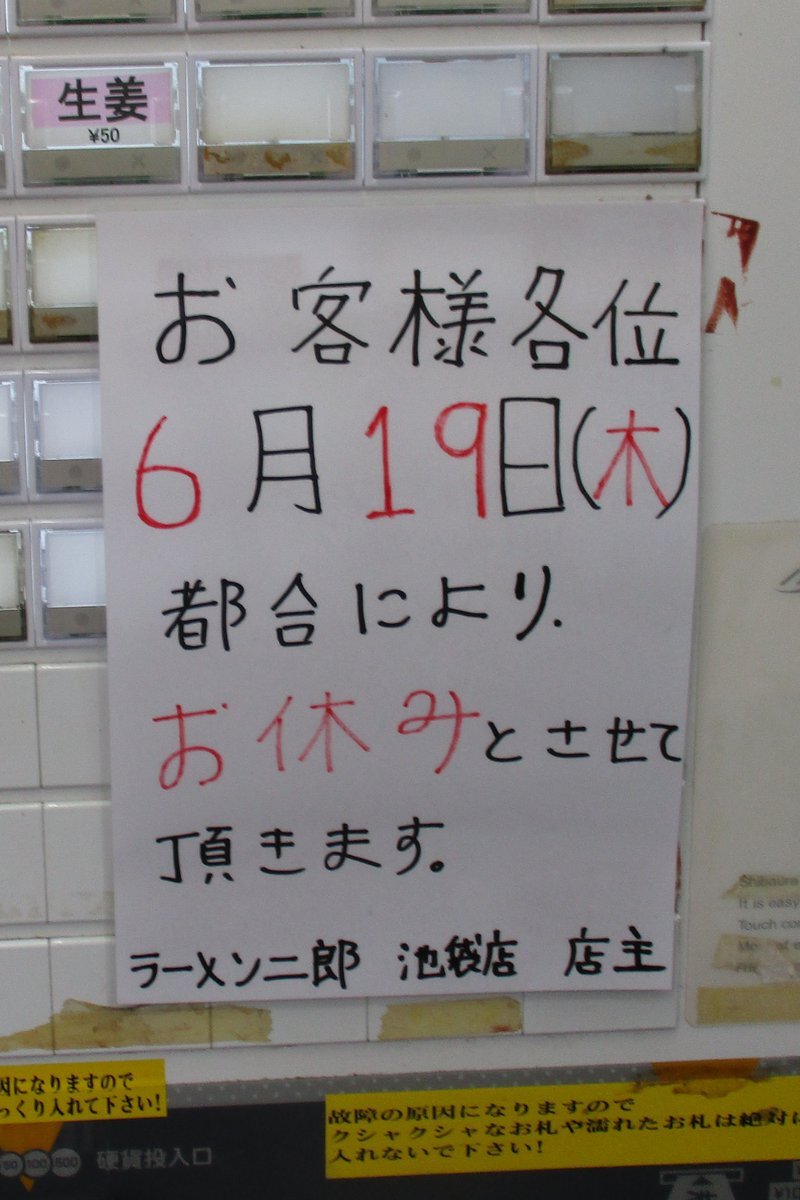 生姜
¥50
お客様各位
6月19日(木)
都合により、
お休みとさせて
頂きます。
ラーメン二郎 池袋店 店主
Shibaura
It is easy
Touch
因になりますので
っくり入れて下さい!
50 100 500 硬貨投入口
故障の原因になりますので
クシャクシャなお札や濡れたお札は絶対に
入れないで下さい!